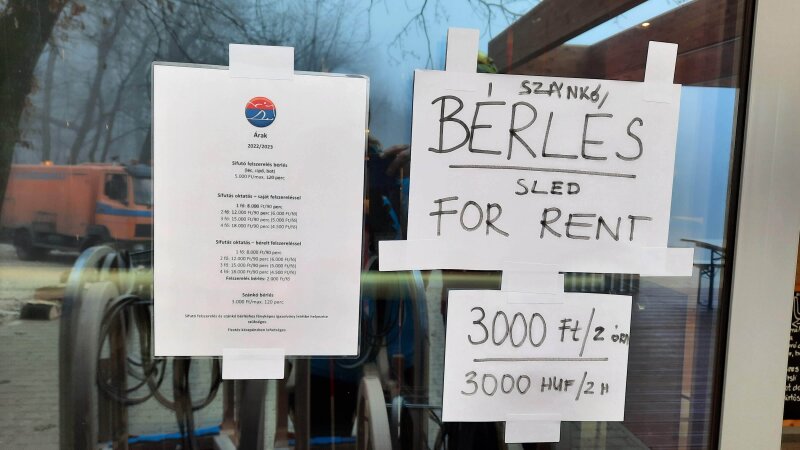 Árak
2022/2023
Sífutó felszerelés bérlés
(léc, cipő, bot)
5.000 Ft/max. 120 perc
Sífutás oktatás – saját felszereléssel
1 fő: 8.000 Ft/90 perc
2 fő: 12.000 Ft/90 perc (6.000 Ft/fő)
3 fő: 15.000 Ft/90 perc (5.000 Ft/fő)
4 fő: 18.000 Ft/90 perc (4.500 Ft/fő)
Sífutás oktatás – bérelt felszereléssel
1 fő: 8.000 Ft/90 perc
2 fő: 12.000 Ft/90 perc (6.000 Ft/fő)
3 fő: 15.000 Ft/90 perc (5.000 Ft/fő)
4 fő: 18.000 Ft/90 perc (4.500 Ft/fő)
Felszerelés bérlés: 2.000 Ft/fő
Szánkó bérlés
3.000 Ft/max. 120 perc
Sífutó felszerelés és szánkó bérléshez fényképes igazolvány letétbe helyezése
szükséges.
Fizetés készpénzben lehetséges
SZÁNKÓ/
BÉRLÉS
SLED
FOR RENT
3000 Ft/2 ÓRA
3000 HUF/2 H